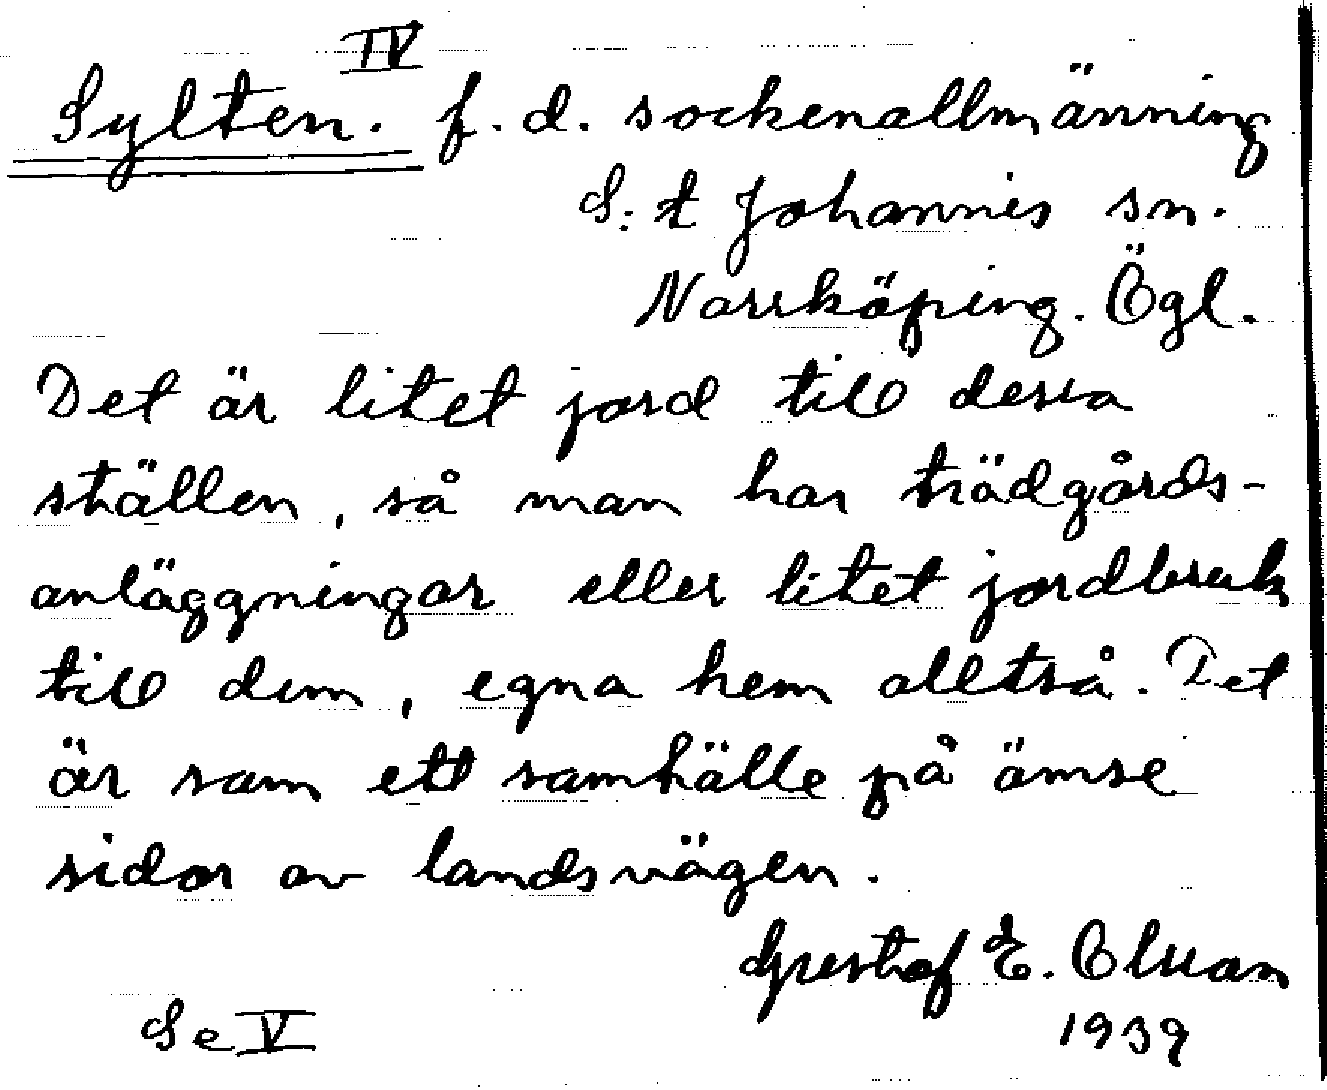 IV
Sylten. f. d. sockenallmänning
S:t Johannis sn.
Norrköping. Ögl.
Det är litet jord till dessa
ställen, så man har trädgårds-
anläggningar eller litet jordbruk
till dem, egna hem alltså. Det
är som ett samhälle på ömse
sidor av landsvägen.
Gustaf E. Olsson
1939
Se V